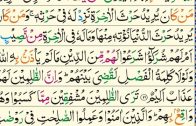 كَانَ يُرِيدُ حَرْثَ الْآخِرَةِ نَزِدْ لَهُ فِي حَرْثِهِ
يُرِيدُ حَرْثَ الدُّنْيَا نُؤْتِهِ مِنْهَا وَمَا لَهُ فِي الْآخِرَةِ مِنْ نَصِيبٍ
لَهُمْ شُرَكَٰٓؤُا شَرَعُوا لَهُمْ مِنَ الدِّينِ مَا لَمْ يَأْذَنْ بِهِ اللَّهُ
وَلَوْلَا كَلِمَةُ الْفَصْلِ لَقُضِيَ بَيْنَهُمْ وَإِنَّ الظَّٰلِمِينَ لَهُمْ
عَذَابٌ أَلِيمٌ تَرَى الظَّٰلِمِينَ مُشْفِقِينَ مِمَّا كَسَبُوا وَهُوَ
وَاقِعٌ بِهِمْ وَالَّذِينَ ءَامَنُوا وَعَمِلُوا الصَّٰلِحَٰتِ فِي